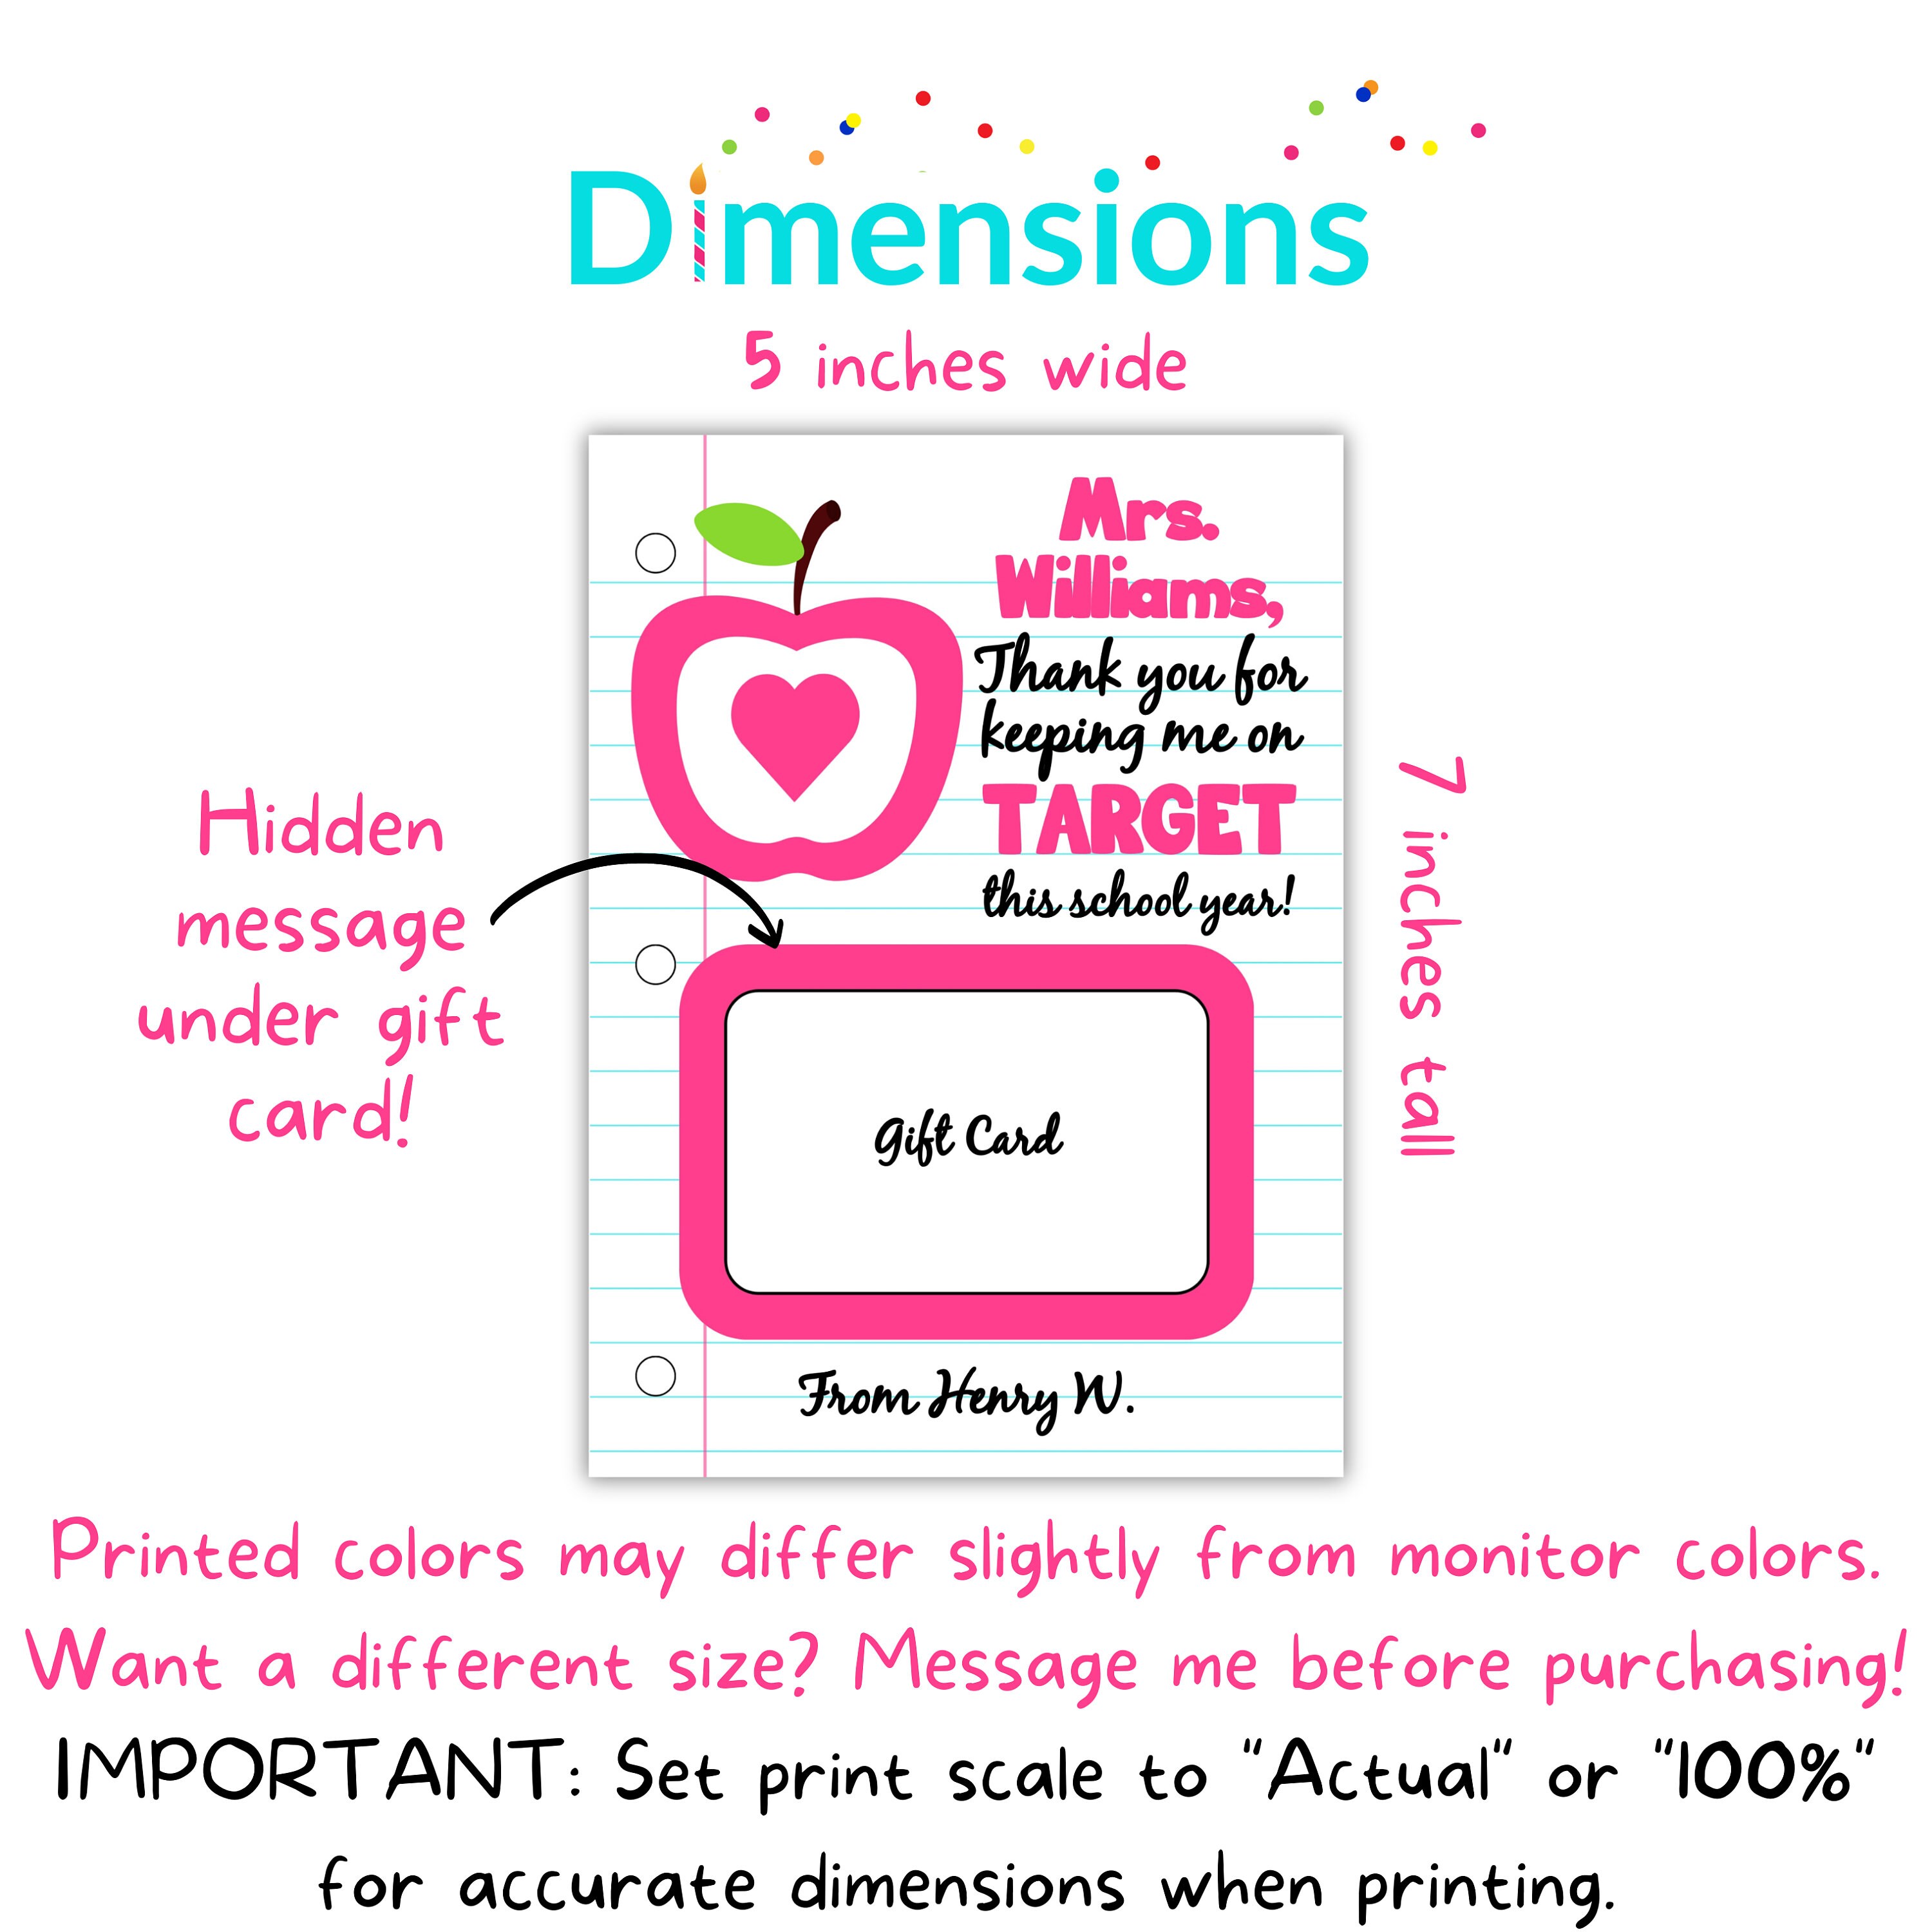 Dimensions
5 inches wide
Mrs.
Williams,
Thank you for
keeping me on
TARGET
this school year!
Hidden
message
under gift
card!
7 inches tall
Gift Card
From Henry W.
Printed colors may differ slightly from monitor colors.
Want a different size? Message me before purchasing!
IMPORTANT: Set print scale to "Actual" or "100%"
for accurate dimensions when printing.